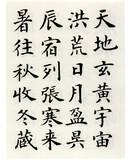 天地玄黃宇宙
洪荒日月盈昃
辰宿列張寒來
暑往秋收冬藏